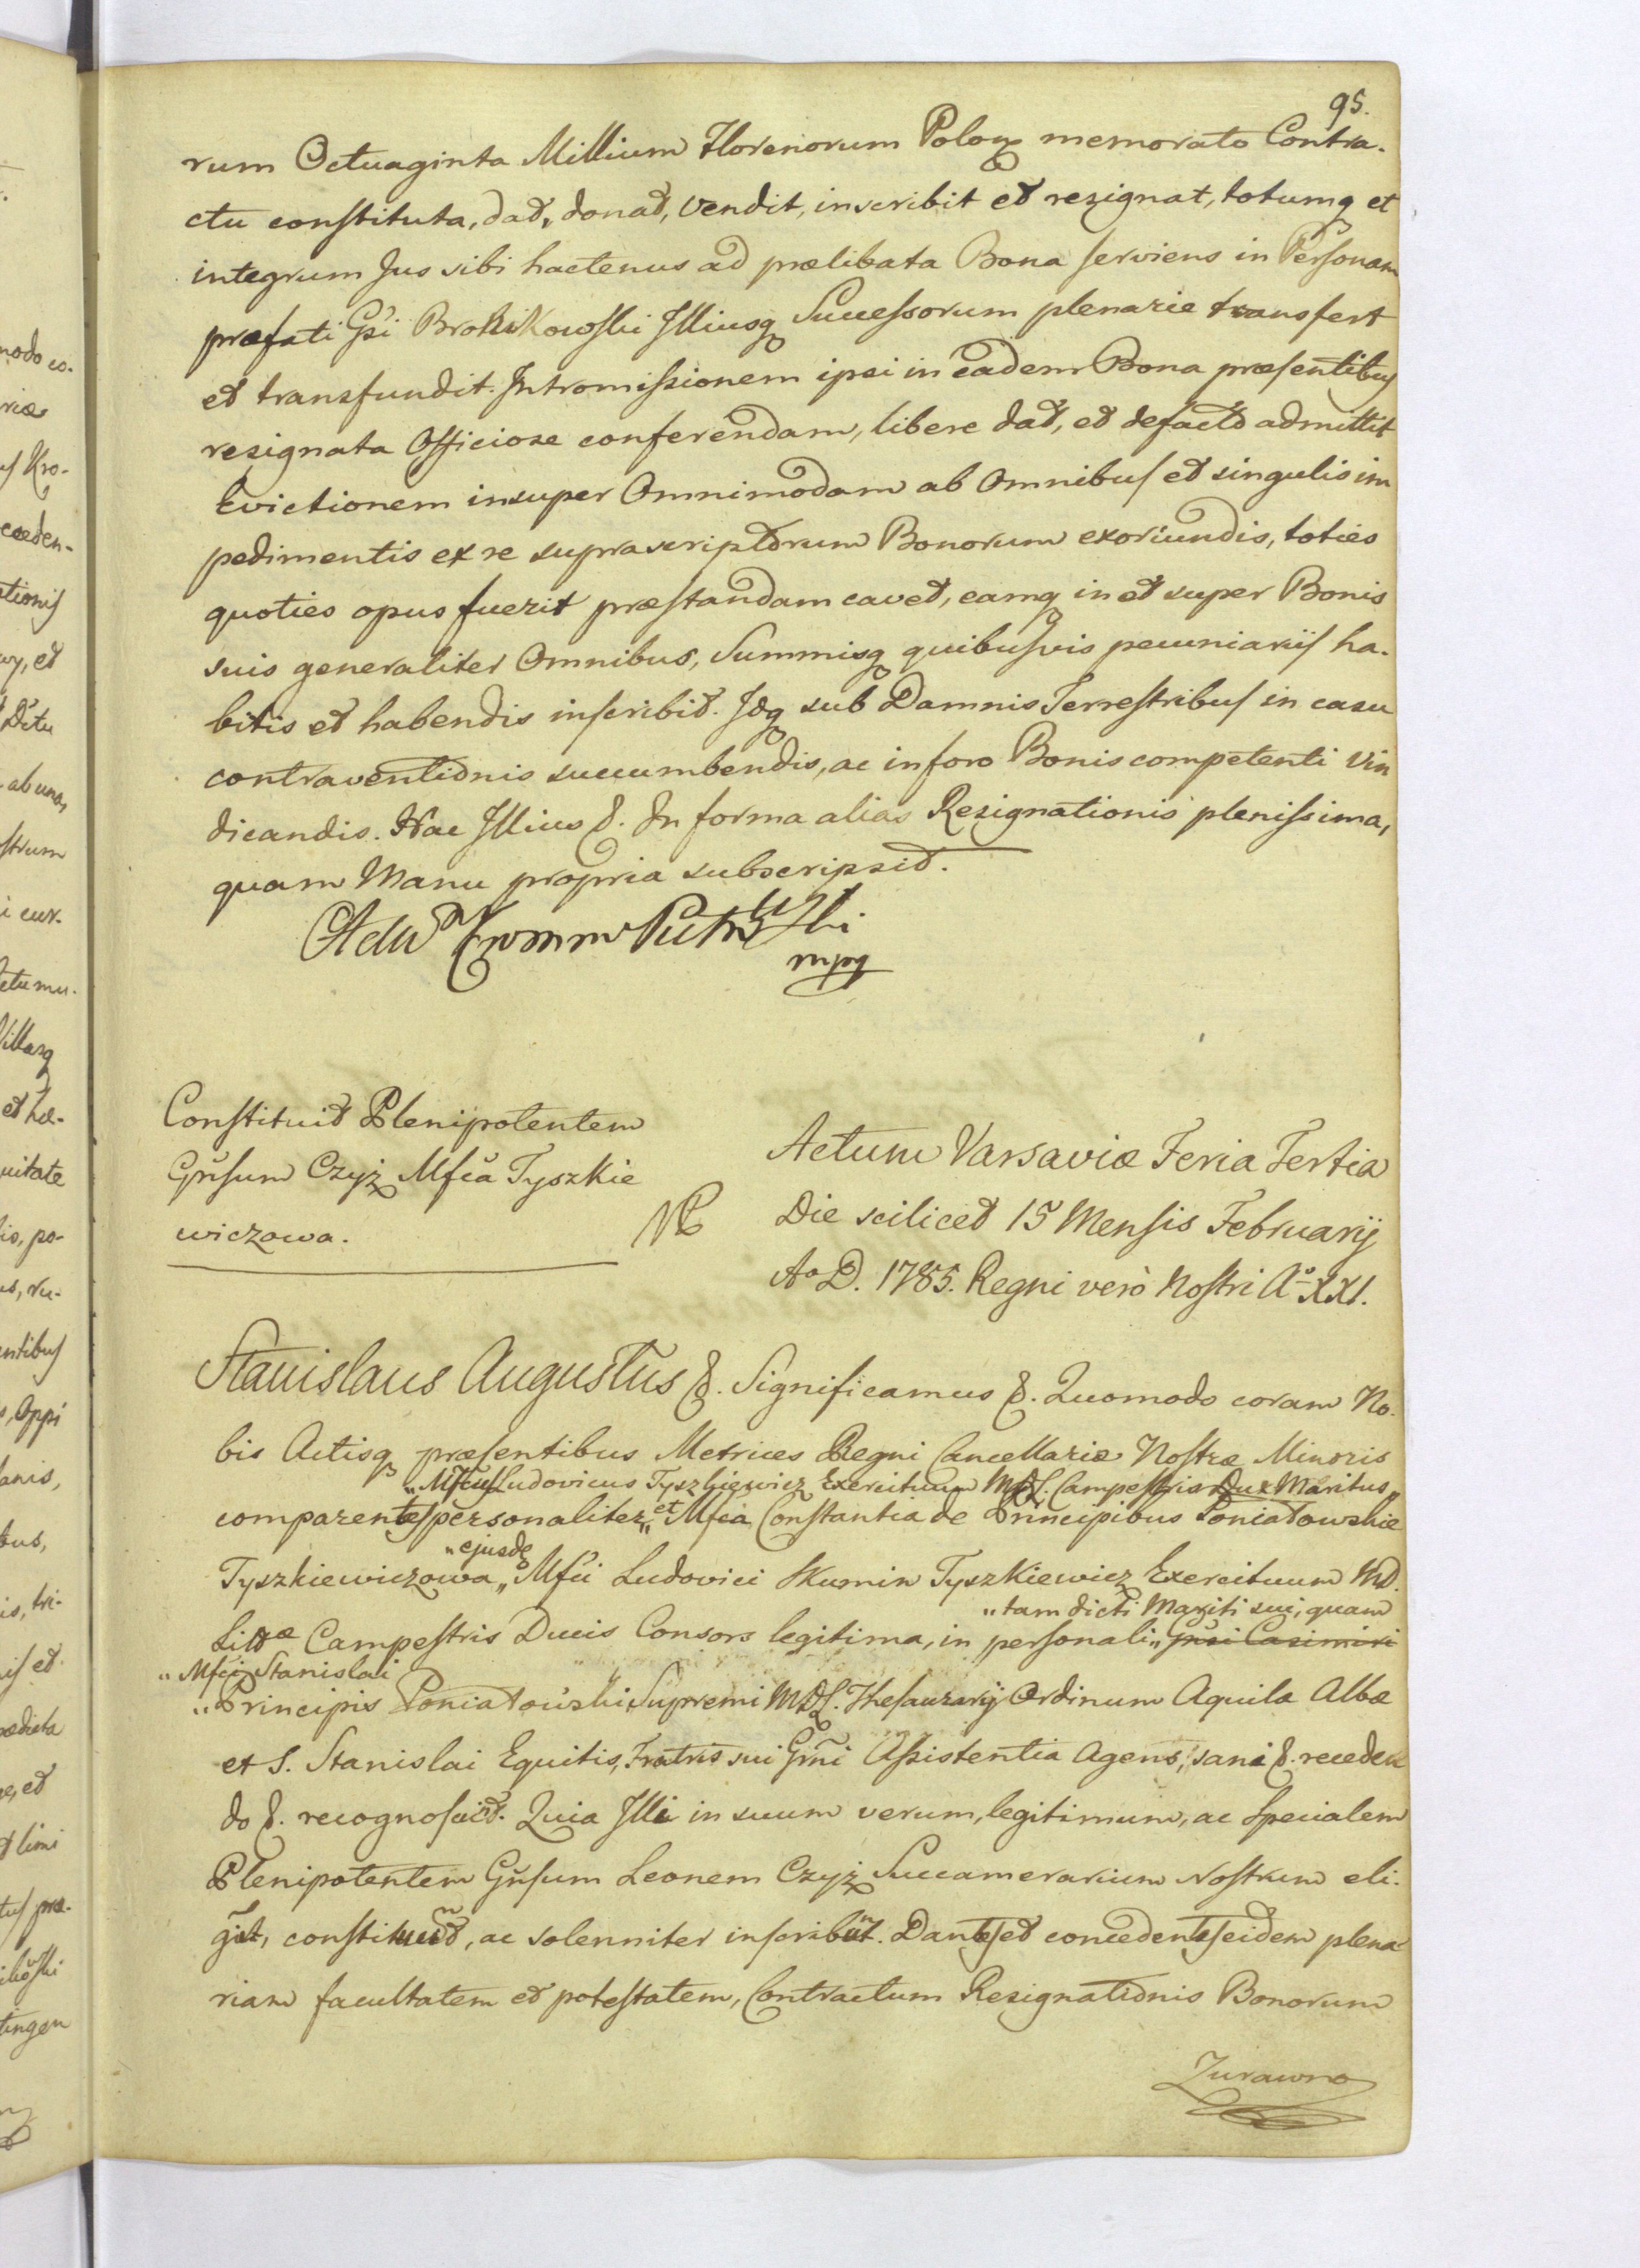 95.
rum Octuaginta Millium Florenorum Polog memorato Contra-
ctu constituta, dat, donat, vendit, inscribit et rezignat, totumq et
integrum Jus sibi hactenus ad prælibata Bona serviens in Personam
præfati Gsi Brohikowski Illiusq Successorum plenarie transfert
et transfundit. Intromissionem ipsi in eadem Bona præsentibus
resignata Officiose conferendam, libere dat, et defacto admittit
Evictionem insuper Omnimodam ab Omnibus et singulis im
pedimentis ex re suprascriptorum Bonorum exoriundis, toties
quoties opus fuerit præstandam cavet, eamq in et super Bonis
suis generaliter Omnibus, Summisq quibusvis pecuniariis ha-
bitis et habendis inscribit. Idq sub Damnis Terrestribus in casu
contraventionis succumbendis, ac in foro Bonis competenti vin
dicandis. Hac Illius &. In forma alias Resignationis plenissima,
quam Manu propria subscripsit.
mpq
Constituit Plenipotentem
Gnsum Czyż Mfca Tyszkie
wiczowa.
NP
Actum Varsaviæ Feria Tertia
Die scilicet 15 Mensis Februarij
Ao D. 1785. Regni verò Nostri Ao XXI.
Stanislaus Augustus &. Significamus &. Quomodo coram No-
bis Actisq præsentibus Metrices Regni Cancellariæ Nostræ Minoris
„Mfcus Ludovicus Tyszkiewicz Exercituum MDL. Campestris Dux Maritus„
comparentes personaliter „et Mfca Constantia de Principibus Poniatowskie
„ejusdę
Tyszkiewiczowa „Mfci Ludovici Skumin Tyszkiewicz Exercituum MD.
„tam dicti Mariti sui, quam
Littæ Campestris Ducis Consors legitima, in personali „Gnsi Casimiri
„Mfci Stanislai
„Principis Poniatowski Supremi MDL. Thesaurarij Ordinum Aquilæ Albæ
et S. Stanislai Equitis, Fratris sui Grni Assistentia Agens, sani &. receden
do &. recognoscit. Quia Illi in suum verum, legitimum, ac Specialem
Plenipotentem Gnsum Leonem Czyż Succamerarium Nostrum eli-
gut, constituunt, ac solenniter inscribunt. Dantes et concedentes eidem plena
riam facultatem et potestatem, Contractum Resignationis Bonorum
Zurawno